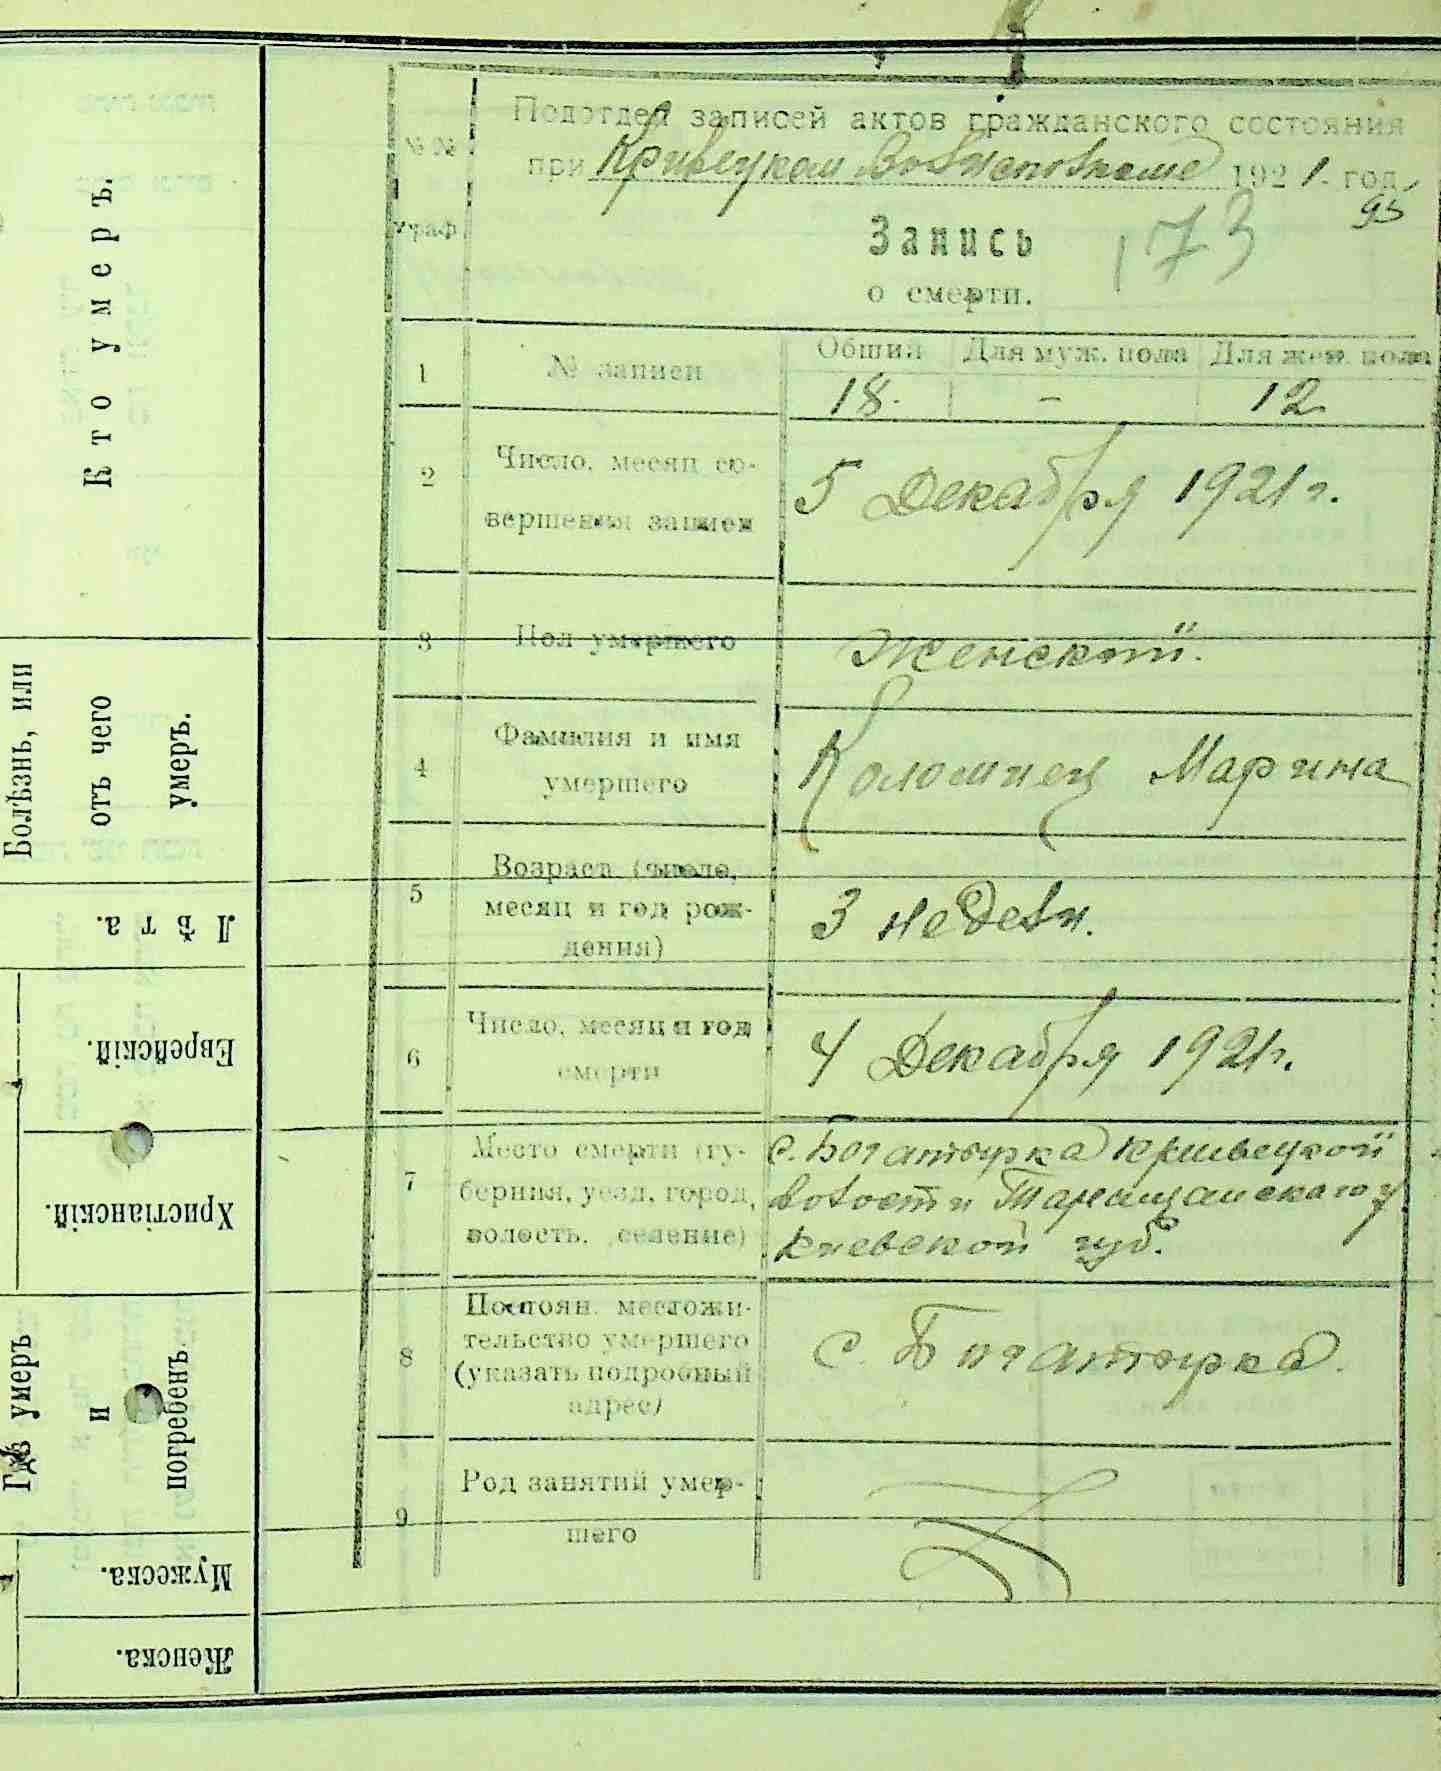 Подотдел записей актов гражданского состояния
при Кривецком Волисполкоме 1921. год,
93
№№
граф
Запись
173
о смерти.
1
№ записи
Общий
Для муж. пола
Для жен. пола
18.
-
12
2
Число, месяц со-
вершения записи
5 Декабря 1921 г.
3
Пол умершего
Женский.
4
Фамилия и имя
умершего
Коломиец Марина
5
Возраста (число,
месяц и год рож-
дения)
3 недели.
6
Число, месяц и год
смерти
4 Декабря 1921 г.
7
Место смерти (гу-
берния, уезд, город,
волость, селение)
с. Богатырка Кривецкой
волости Таращанского у
Киевской губ.
8
Постоян. местожи-
тельство умершего
(указать подробный
адрес)
с. Богатырка.
9
Род занятий умер-
шего
Кто умеръ.
Болѣзнь, или
отъ чего
умеръ.
Лѣта.
Еврейскій.
Христіанскій.
Гдѣ умеръ
и
погребенъ.
Мужеска.
Женска.